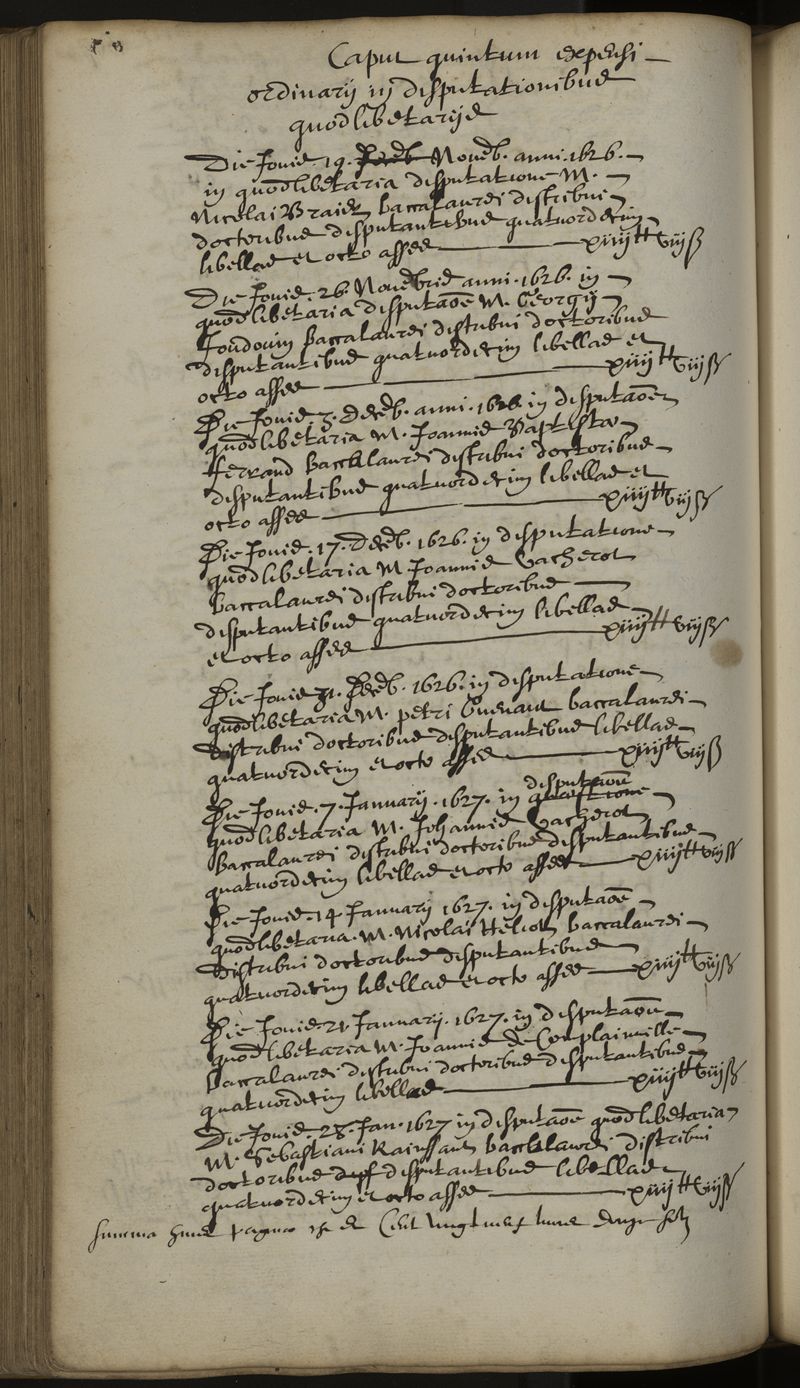 Caput quintum expensi
ordinarij in disputationibus
quodlibetarijs
Die Jouis .19. Nouēb. anni .1626.
in quodlibetaria disputatione M.
Nicolai Braier baccalaurei distribui
doctoribus disputantibus quatuordecim
libellas et octo asses xiiij tt viij ß
Die Jouis .26. Nouēbris anni .1626. in
quodlibetaria disputaōe M. Georgij
Joudouin Baccalaurei distribui doctoribus
disputantibus quatuordecim libellas et
octo asses xiiij tt viij ß
Die Jouis 3. Decēb. anni .1626. in disputaōe
quodlibetaria M. Joannis Baptistæ
Ferrand Baccalaurei distribui doctoribus
disputantibus quatuordecim libellas et
octo asses xiiij tt viij ß
Die Jouis .17. Decēb. 1626. in disputatione
quodlibetaria M Joannis Vacherot
baccalaurei distribui doctoribus
disputantibus quatuordecim libellas
et octo asses xiiij tt viij ß
Die Jouis 31. Decēb. 1626. in disputatione
quodlibetaria M. petri Guenaut baccalaurei
distribui doctoribus disputantibus libellas
quatuordecim et octo asses xiiij tt viij ß
Die Jouis .7. Januarij .1627. in disputaōe
quodlibetaria M. Johannis Vacherot
Baccalaurei distribui doctoribus disputantibus
quatuordecim libellas et octo asses xiiij tt viij ß
Die Jouis .14 Januarij 1627. in disputaōe
quodlibetaria. M. Nicolai Heliot baccalaurei
distribui doctoribus disputantibus
quatuordecim libellas et octo asses xiiij tt viij ß
Die Jouis 21 Januarij .1627. in disputaōe
quodlibetaria M. Joannis de Complainuille
baccalaurei distribui doctoribus disputantibus
quatuordecim libellas xiiij tt viij ß
Die Jouis .28. Jan. 1627 in disputaōe quodlibetaria
M. Sebastiani Rainssant baccalaurei distribui
doctoribus disputantibus libellas
quatuordecim et octo asses xiiij tt viij ß
summa huius paginæ est Cent vingt neuf liures